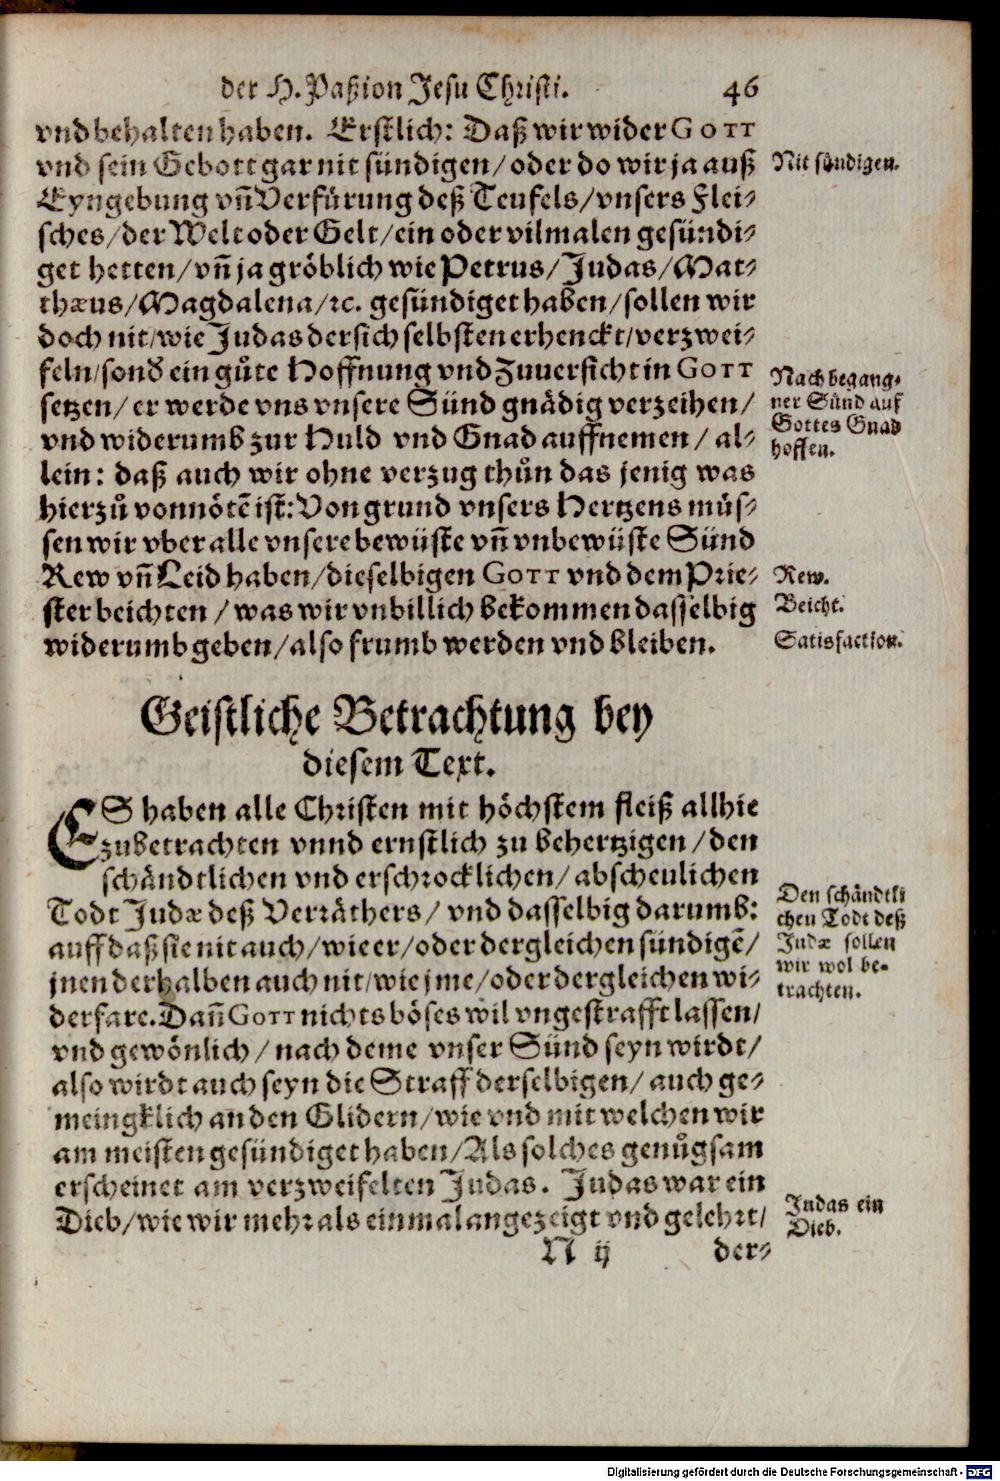 der H. Paßion Jesu Christi. 46
vnd behalten haben. Erstlich: Daß wir wider GOTT
vnd sein Gebott gar nit sündigen/ oder do wir ja auß
Nit sündigen.
Eyngebung vñ Verfürung deß Teufels/ vnsers Flei-
sches/ der Welt oder Gelt/ ein oder vilmalen gesündi-
get hetten/ vñ ja gröblich wie Petrus/ Judas/ Mat-
thæus/ Magdalena/ ꝛc. gesündiget haben/ sollen wir
doch nit/ wie Judas der sich selbsten erhenckt/ verzwei-
feln/ sond ein gůte Hoffnung vnd Zuuersicht in GOTT
setzen/ er werde vns vnsere Sünd gnädig verzeihen/
vnd widerumb zur Huld vnd Gnad auffnemen/ al-
Nach begang-
ner Sünd auf
Gottes Gnad
hoffen.
lein: daß auch wir ohne verzug thůn das jenig was
hierzů vonnötẽ ist: Von grund vnsers Hertzens müs-
sen wir vber alle vnsere bewüste vñ vnbewüste Sünd
Rew vñ Leid haben/ dieselbigen GOTT vnd dem Prie-
Rew.
ster beichten/ was wir vnbillich bekommen dasselbig
Beicht.
widerumb geben/ also frumb werden vnd bleiben.
Satisfaction.
Geistliche Betrachtung bey
diesem Text.
ES haben alle Christen mit höchstem fleiß allhie
zubetrachten vnnd ernstlich zu behertzigen/ den
schändtlichen vnd erschrocklichen/ abscheulichen
Todt Judæ deß Verräthers/ vnd dasselbig darumb:
auff daß sie nit auch/ wie er/ oder dergleichen sündigẽ/
jnen derhalben auch nit/ wie jme/ oder dergleichen wi-
Den schändtli
chen Todt deß
Judæ sollen
wir wol be-
trachten.
derfare. Dañ GOTT nichts böses wil vngestrafft lassen/
vnd gewönlich/ nach deme vnser Sünd seyn wirdt/
also wirdt auch seyn die Straff derselbigen/ auch ge-
meingklich an den Glidern/ wie vnd mit welchen wir
am meisten gesündiget haben/ Als solches genůgsam
erscheinet am verzweifelten Judas. Judas war ein
Dieb/ wie wir mehr als einmal angezeigt vnd gelehrt/
Judas ein
Dieb.
N ij der-
Digitalisierung gefördert durch die Deutsche Forschungsgemeinschaft - DFG